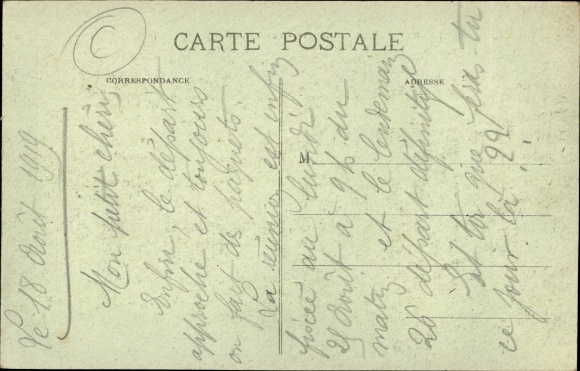 CARTE POSTALE
CORRESPONDANCE
ADRESSE
M
Le 18 Août 1919
Mon petit chéri,
Enfin, le départ
approche et toujours
on fait des paquets.
La réunion est enfin
fixée au lundi
25 Août à 9 h du
matin et le lendemain
26 départ définitif
Et toi que fais tu
ce jour là ??!